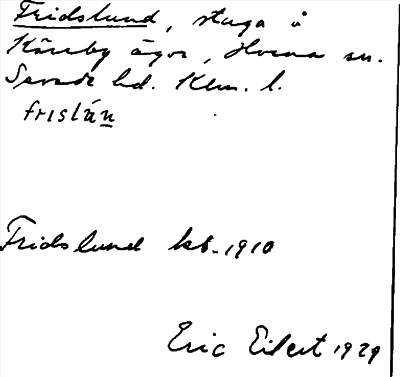 Fridslund, stuga å
Kåreby ägor, Horna sn.
Sevede hd. Klm. l.
frislán
Fridslund kb. 1910
Eric Eilert 1929